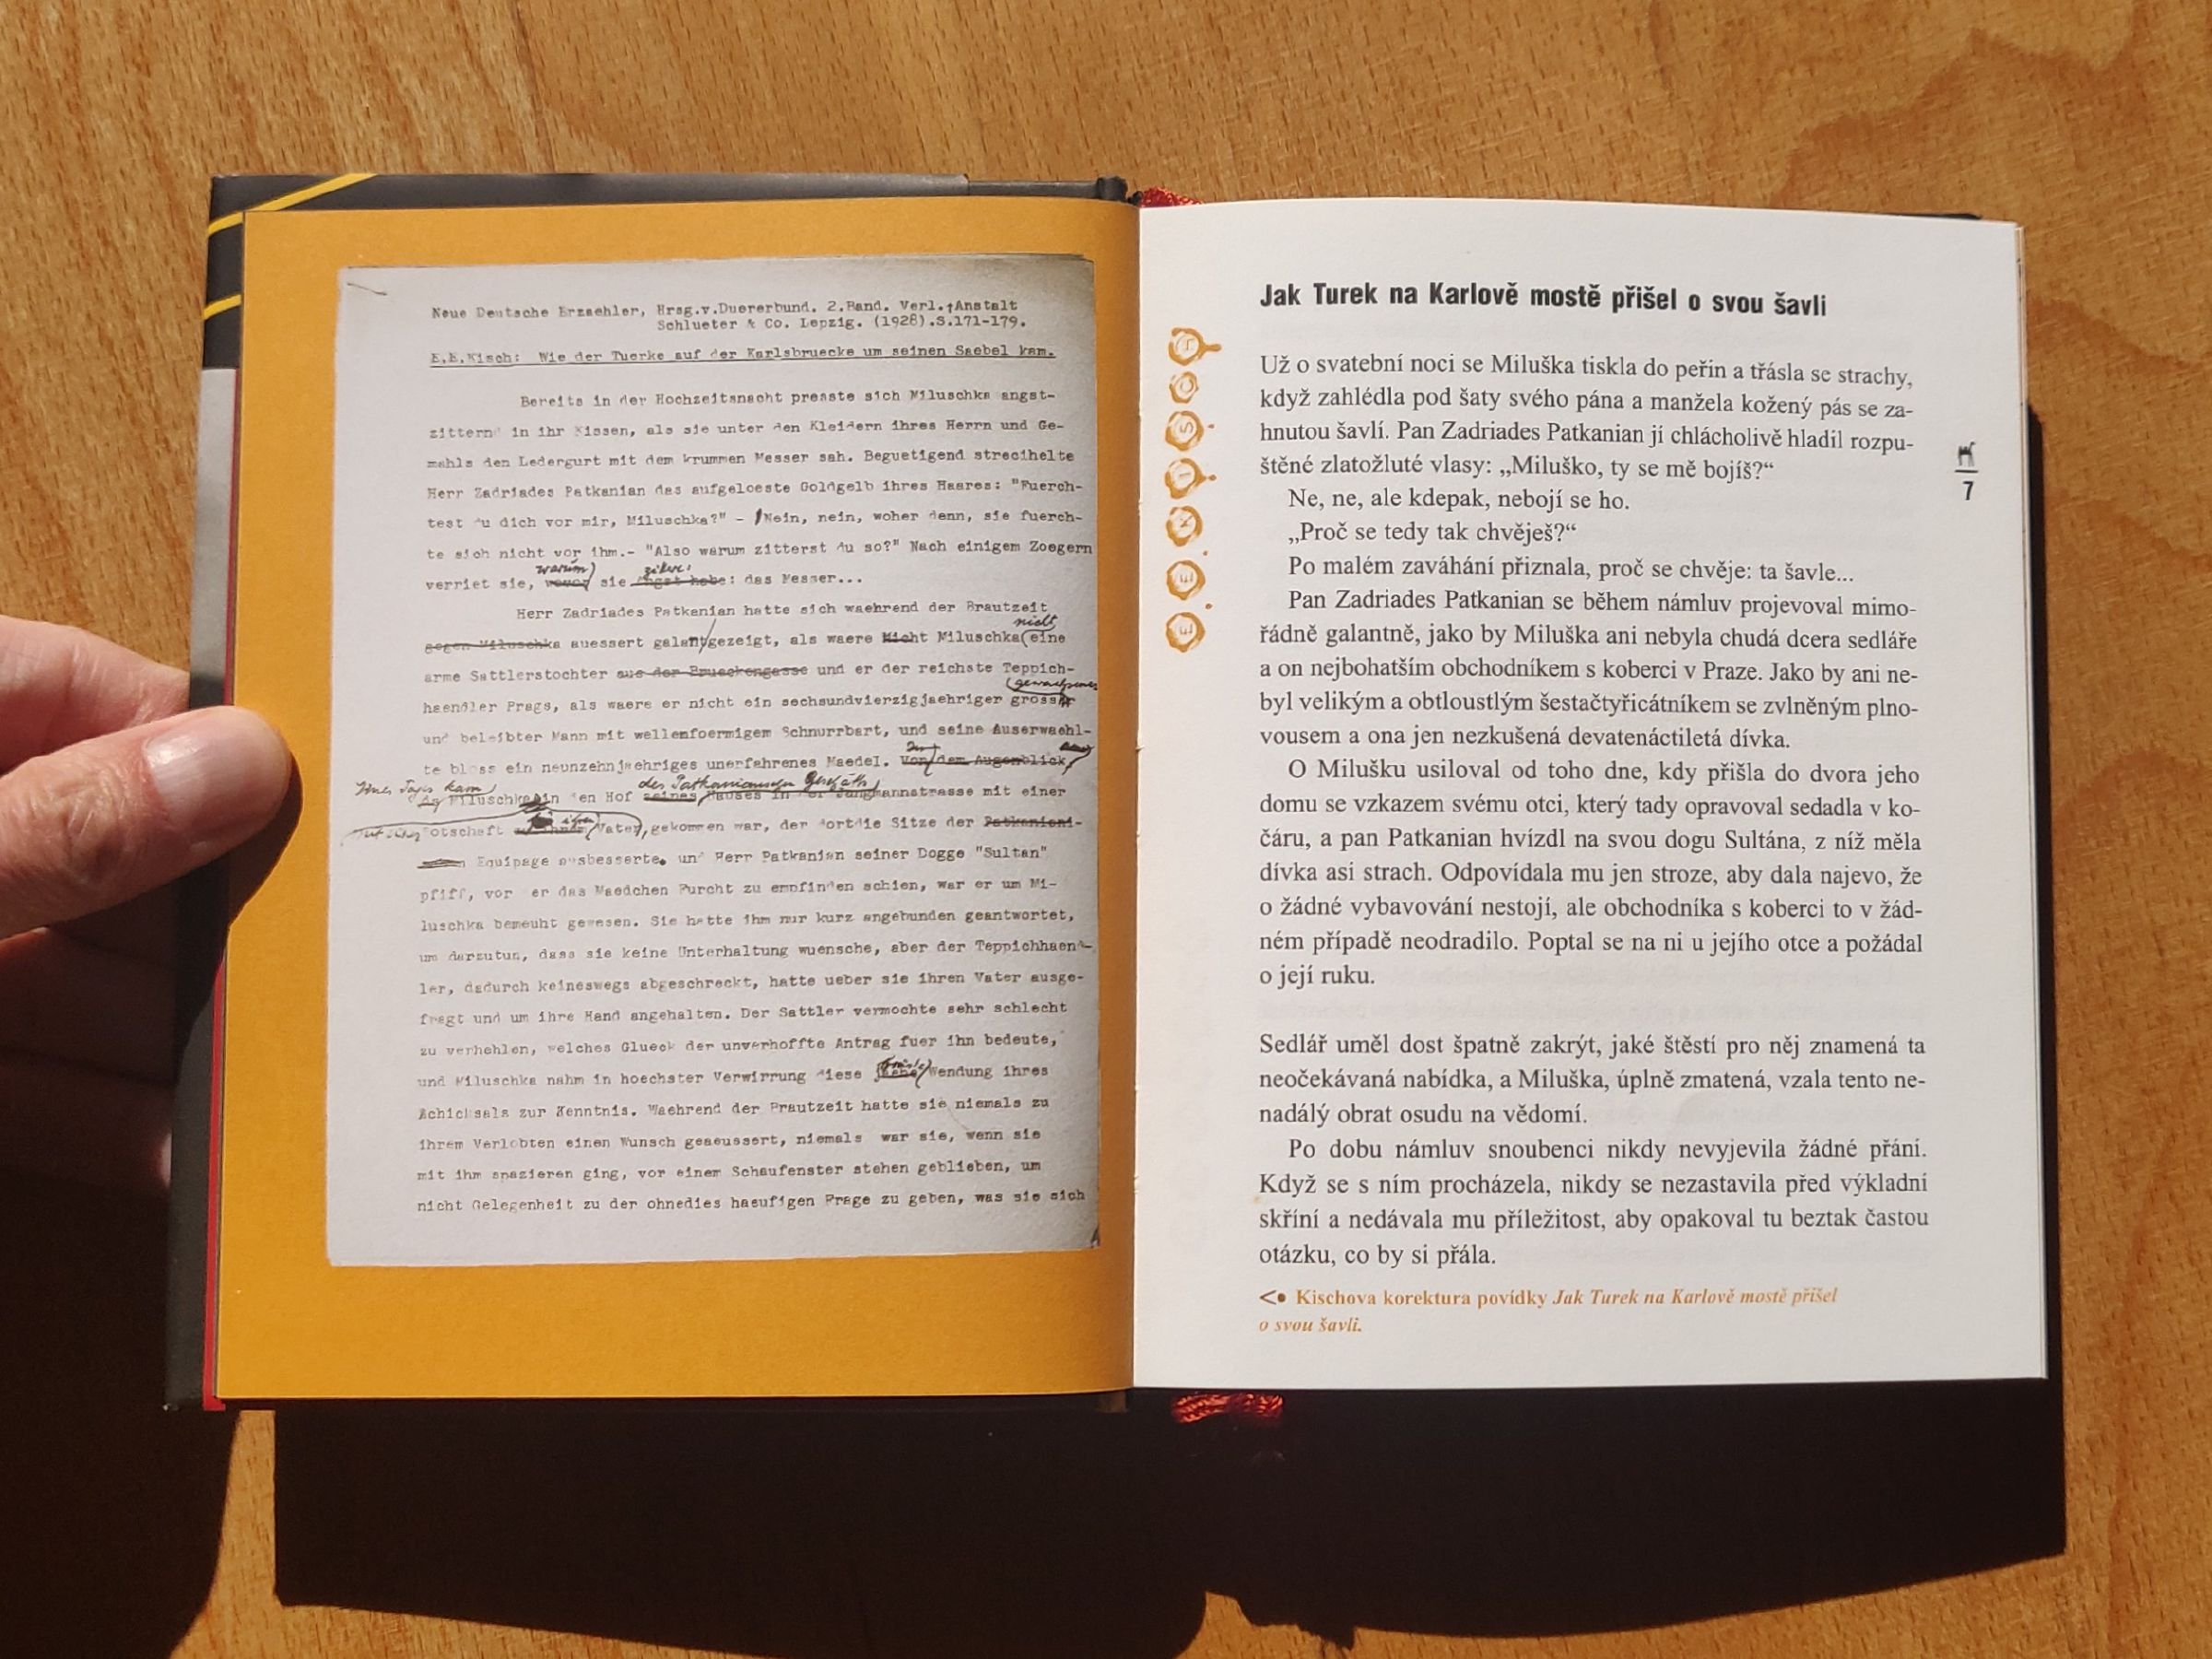 Neue Deutsche Erzaehler, Hrsg.v.Duererbund. 2.Band. Verl.+Anstalt
Schlueter & Co. Lepzig. (1928).S.171-179.
E.E.Kisch: Wie der Tuerke auf der Karlsbruecke um seinen Saebel kam.
Bereits in der Hochzeitsnacht presste sich Miluschka angst-
zitternd in ihr Kissen, als sie unter den Kleidern ihres Herrn und Ge-
mahls den Ledergurt mit dem krummen Messer sah. Beguetigend strecihelte
Herr Zadriades Patkanian das aufgeloeste Goldgelb ihres Haares: "Fuerch-
test du dich vor mir, Miluschka?" - Nein, nein, woher denn, sie fuerch-
te sich nicht vor ihm.- "Also warum zitterst du so?" Nach einigem Zoegern
warum
verriet sie, wovor sie Angst habe: das Messer...
Herr Zadriades Patkanian hatte sich waehrend der Brautzeit
nicht
gegen Miluschka auessert galant gezeigt, als waere Nicht Miluschka eine
arme Sattlerstochter aus der Brueckengasse und er der reichste Teppich-
gewachsener
haendler Prags, als waere er nicht ein sechsundvierzigjaehriger grosser
und beleibter Mann mit wellenfoermigem Schnurrbart, und seine Auserwaehl-
te bloss ein neunzehnjaehriges unerfahrenes Maedel. Von dem Augenblick,
Eines Tages kam des Patkanianschen Geschäfts
Miluschka in den Hof seines Hauses in der Jungmannstrasse mit einer
Botschaft ihren Vater, gekommen war, der dortdie Sitze der Patkaniani-
Equipage ausbesserte. und Herr Patkanian seiner Dogge "Sultan"
pfiff, vor der das Maedchen Furcht zu empfinden schien, war er um Mi-
luschka bemueht gewesen. Sie hatte ihm nur kurz angebunden geantwortet,
um darzutun, dass sie keine Unterhaltung wuensche, aber der Teppichhaend-
ler, dadurch keineswegs abgeschreckt, hatte ueber sie ihren Vater ausge-
fragt und um ihre Hand angehalten. Der Sattler vermochte sehr schlecht
zu verhehlen, welches Glueck der unverhoffte Antrag fuer ihn bedeute,
und Miluschka nahm in hoechster Verwirrung diese Wendung ihres
Schicksals zur Kenntnis. Waehrend der Brautzeit hatte sie niemals zu
ihrem Verlobten einen Wunsch geaeussert, niemals war sie, wenn sie
mit ihm spazieren ging, vor einem Schaufenster stehen geblieben, um
nicht Gelegenheit zu der ohnedies haeufigen Frage zu geben, was sie sich
E. E. KISCH
Jak Turek na Karlově mostě přišel o svou šavli
Už o svatební noci se Miluška tiskla do peřin a třásla se strachy,
když zahlédla pod šaty svého pána a manžela kožený pás se za-
hnutou šavlí. Pan Zadriades Patkanian jí chlácholivě hladil rozpu-
štěné zlatožluté vlasy: „Miluško, ty se mě bojíš?“
Ne, ne, ale kdepak, nebojí se ho.
„Proč se tedy tak chvěješ?“
Po malém zaváhání přiznala, proč se chvěje: ta šavle...
Pan Zadriades Patkanian se během námluv projevoval mimo-
řádně galantně, jako by Miluška ani nebyla chudá dcera sedláře
a on nejbohatším obchodníkem s koberci v Praze. Jako by ani ne-
byl velikým a obtloustlým šestačtyřicátníkem se zvlněným plno-
vousem a ona jen nezkušená devatenáctiletá dívka.
O Milušku usiloval od toho dne, kdy přišla do dvora jeho
domu se vzkazem svému otci, který tady opravoval sedadla v ko-
čáru, a pan Patkanian hvízdl na svou dogu Sultána, z níž měla
dívka asi strach. Odpovídala mu jen stroze, aby dala najevo, že
o žádné vybavování nestojí, ale obchodníka s koberci to v žád-
ném případě neodradilo. Poptal se na ni u jejího otce a požádal
o její ruku.
Sedlář uměl dost špatně zakrýt, jaké štěstí pro něj znamená ta
neočekávaná nabídka, a Miluška, úplně zmatená, vzala tento ne-
nadálý obrat osudu na vědomí.
Po dobu námluv snoubenci nikdy nevyjevila žádné přání.
Když se s ním procházela, nikdy se nezastavila před výkladní
skříní a nedávala mu příležitost, aby opakoval tu beztak častou
otázku, co by si přála.
Kischova korektura povídky Jak Turek na Karlově mostě přišel
o svou šavli.
7